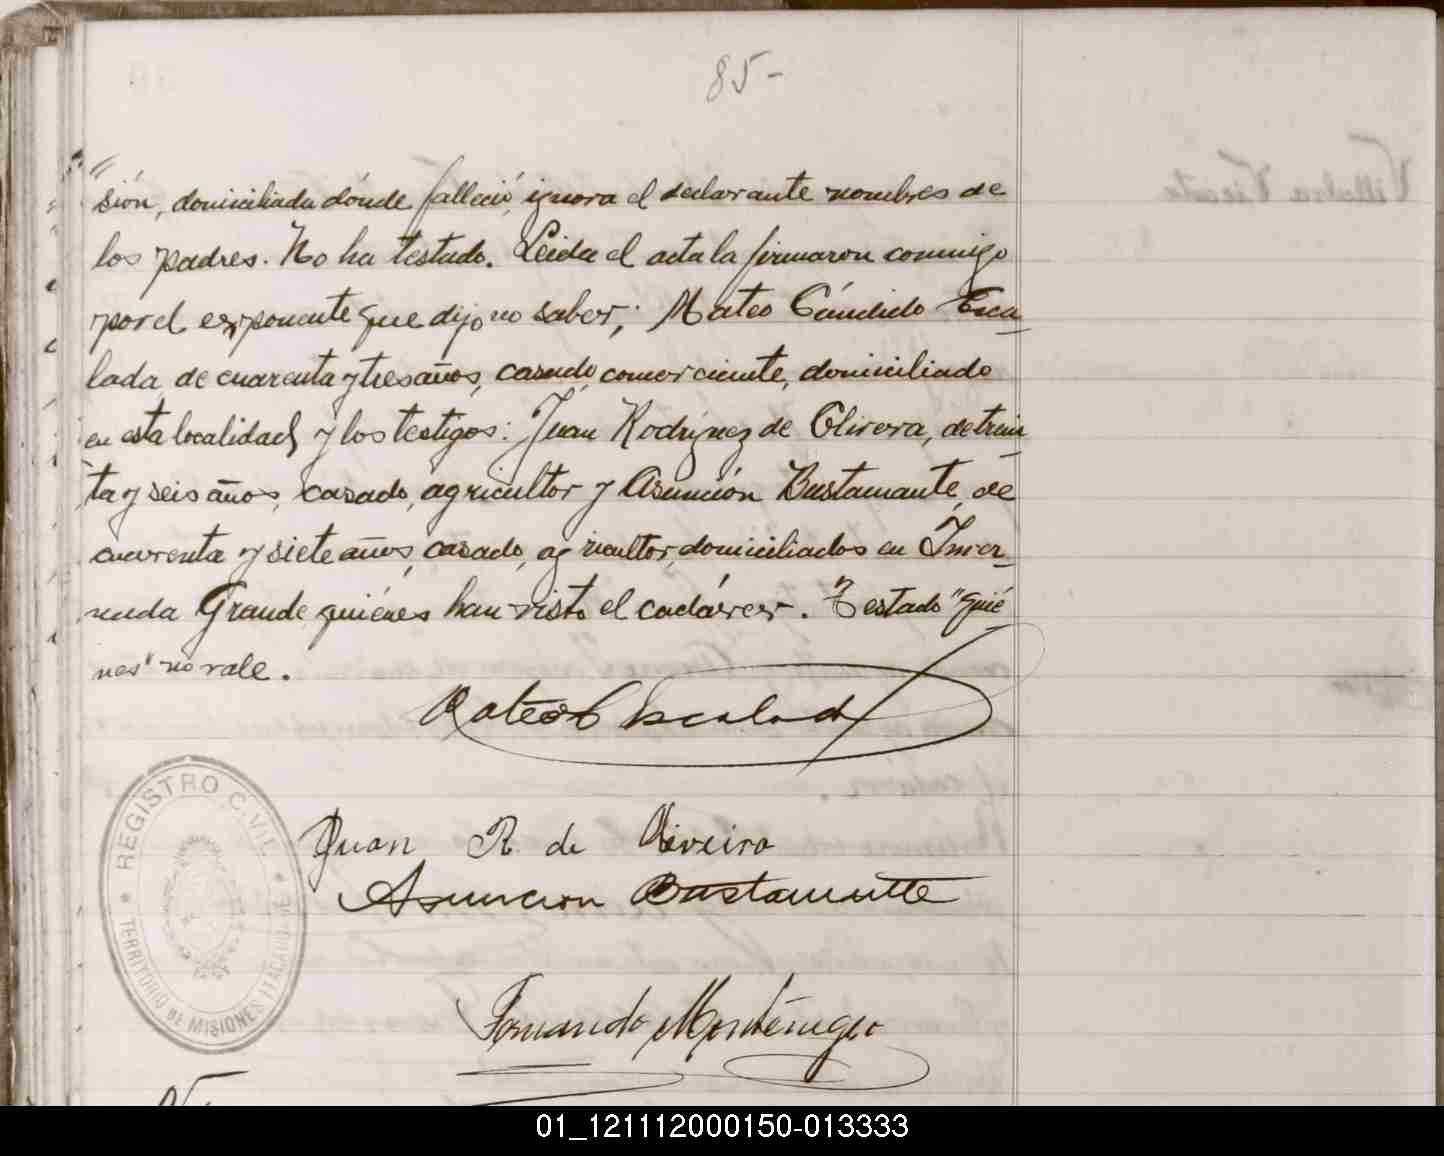 85-
sión, domiciliada dónde falleció, ignora el declarante nombres de
los padres. No ha testado. Leida el acta la firmaron conmigo
por el exponente que dijo no saber; Mateo Cándido Esca_
lada de cuarenta y tres años, casado, comerciante, domiciliado
en esta localidad y los testigos: Juan Rodriguez de Olivera, de trein_
ta y seis años, casado, agricultor y Asunción Bustamante, de
cuarenta y siete años, casado, agricultor, domiciliados en
Grande quiénes han visto el cadáver. Testado "quié_
nes" no vale.
Mateo C Escalada
Juan R. de Oliveira
Asuncion Bustamante
Fernando Montenegro
REGISTRO CIVIL
TERRITORIO DE MISIONES ITACARUARE
01_121112000150-013333